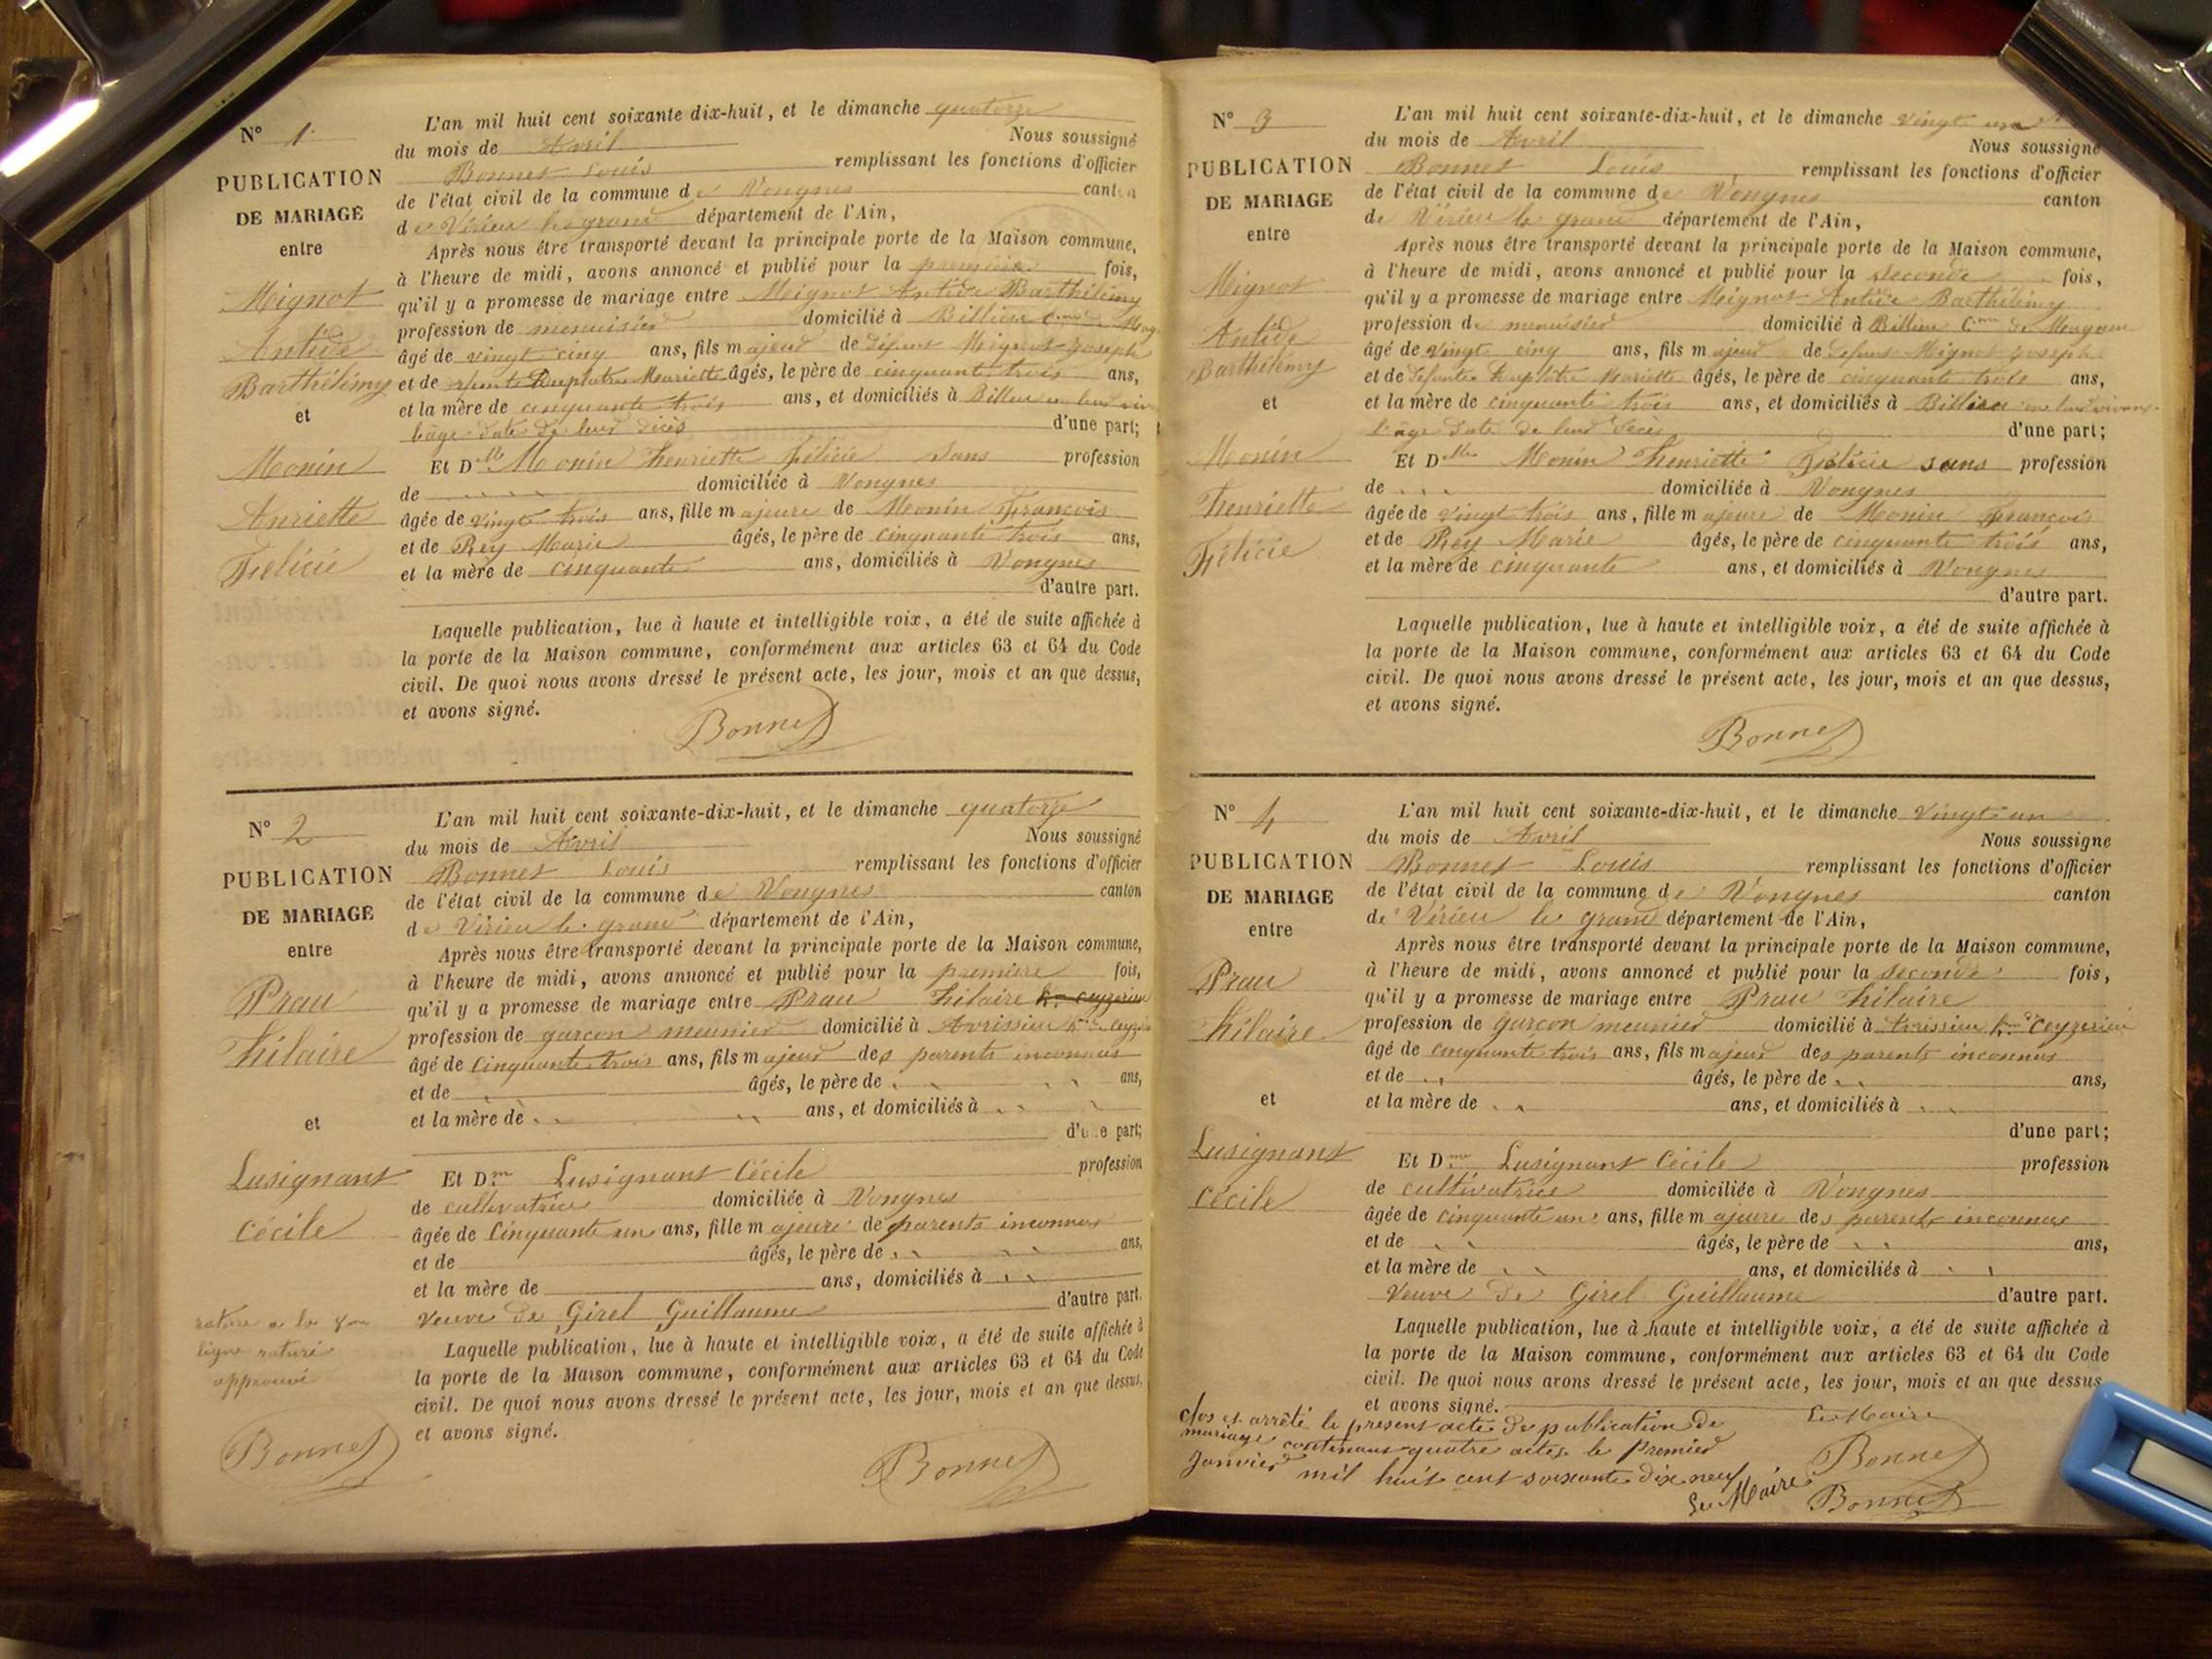 N° 1
PUBLICATION
DE MARIAGE
entre
Mignot
Antide
Barthélimy
et
Monin
Anriette
Félicie
L'an mil huit cent soixante dix-huit, et le dimanche quatorze
du mois de Avril Nous soussigné
Bonnet Louis remplissant les fonctions d'officier
de l'état civil de la commune de Vongnes canton
de Virieu le grand département de l'Ain,
Après nous être transporté devant la principale porte de la Maison commune,
à l'heure de midi, avons annoncé et publié pour la première fois,
qu'il y a promesse de mariage entre Mignot Antide Barthélimy
profession de menuisier domicilié à Billieu
âgé de vingt cinq ans, fils majeur de défunt Mignot Joseph
et de Mariette âgés, le père de cinquante trois ans,
et la mère de cinquante trois ans, et domiciliés à Billieu
l'âge date de leur décès d'une part;
Et Dlle Monin henriette félicie sans profession
de domiciliée à Vongnes
âgée de vingt trois ans, fille majeure de Monin François
et de Rey Marie âgés, le père de cinquante trois ans,
et la mère de cinquante ans, domiciliés à Vongnes
d'autre part.
Laquelle publication, lue à haute et intelligible voix, a été de suite affichée à
la porte de la Maison commune, conformément aux articles 63 et 64 du Code
civil. De quoi nous avons dressé le présent acte, les jour, mois et an que dessus,
et avons signé.
Bonnet
N° 2
PUBLICATION
DE MARIAGE
entre
Prau
hilaire
et
Lusignant
Cécile
rature a la 8me
ligne raturé
approuvé
Bonnet
L'an mil huit cent soixante-dix-huit, et le dimanche quatorze
du mois de Avril Nous soussigné
Bonnet Louis remplissant les fonctions d'officier
de l'état civil de la commune de Vongnes canton
de Virieu le grand département de l'Ain,
Après nous être transporté devant la principale porte de la Maison commune,
à l'heure de midi, avons annoncé et publié pour la première fois,
qu'il y a promesse de mariage entre Prau hilaire
profession de garçon meunier domicilié à Avrissieu
âgé de cinquante trois ans, fils majeur des parents inconnus
et de âgés, le père de ans,
et la mère de ans, et domiciliés à
d'une part;
Et Dme Lusignant Cécile profession
de cultivatrice domiciliée à Vongnes
âgée de Cinquante un ans, fille majeure de parents inconnus
et de âgés, le père de ans,
et la mère de ans, domiciliés à
veuve de Girel Guillaume d'autre part.
Laquelle publication, lue à haute et intelligible voix, a été de suite affichée à
la porte de la Maison commune, conformément aux articles 63 et 64 du Code
civil. De quoi nous avons dressé le présent acte, les jour, mois et an que dessus,
et avons signé.
Bonnet
N° 3
PUBLICATION
DE MARIAGE
entre
Mignot
Antide
Barthélémy
et
Monin
henriette
Félicie
L'an mil huit cent soixante-dix-huit, et le dimanche vingt un
du mois de Avril Nous soussigné
Bonnet Louis remplissant les fonctions d'officier
de l'état civil de la commune de Vongnes canton
de Virieu le grand département de l'Ain,
Après nous être transporté devant la principale porte de la Maison commune,
à l'heure de midi, avons annoncé et publié pour la seconde fois,
qu'il y a promesse de mariage entre Mignot Antide Barthélémy
profession de menuisier domicilié à Billieu
âgé de vingt cinq ans, fils majeur de défunt Mignot joseph
et de défunte Mariette âgés, le père de cinquante trois ans,
et la mère de cinquante trois ans, et domiciliés à Billieu
l'âge date de leur décès d'une part;
Et Dlle Monin henriette Félicie sans profession
de domiciliée à Vongnes
âgée de vingt trois ans, fille majeure de Monin François
et de Rey Marie âgés, le père de cinquante trois ans,
et la mère de cinquante ans, et domiciliés à Vongnes
d'autre part.
Laquelle publication, lue à haute et intelligible voix, a été de suite affichée à
la porte de la Maison commune, conformément aux articles 63 et 64 du Code
civil. De quoi nous avons dressé le présent acte, les jour, mois et an que dessus,
et avons signé.
Bonnet
N° 4
PUBLICATION
DE MARIAGE
entre
Prau
hilaire
et
Lusignant
Cécile
L'an mil huit cent soixante-dix-huit, et le dimanche vingt un
du mois de Avril Nous soussigné
Bonnet Louis remplissant les fonctions d'officier
de l'état civil de la commune de Vongnes canton
de Virieu le grand département de l'Ain,
Après nous être transporté devant la principale porte de la Maison commune,
à l'heure de midi, avons annoncé et publié pour la seconde fois,
qu'il y a promesse de mariage entre Prau hilaire
profession de garçon meunier domicilié à Avrissieu Ceyzerieu
âgé de cinquante trois ans, fils majeur des parents inconnus
et de âgés, le père de ans,
et la mère de ans, et domiciliés à
d'une part;
Et Dme Lusignant Cécile profession
de cultivatrice domiciliée à Vongnes
âgée de cinquante un ans, fille majeure des parents inconnus
et de âgés, le père de ans,
et la mère de ans, et domiciliés à
veuve de Girel Guillaume d'autre part.
Laquelle publication, lue à haute et intelligible voix, a été de suite affichée à
la porte de la Maison commune, conformément aux articles 63 et 64 du Code
civil. De quoi nous avons dressé le présent acte, les jour, mois et an que dessus
et avons signé. Le Maire
Bonnet
Clos et arrêté le présent acte de publication de
mariage contenant quatre actes le Premier
Janvier mil huit cent soixante dix neuf
Le Maire Bonnet